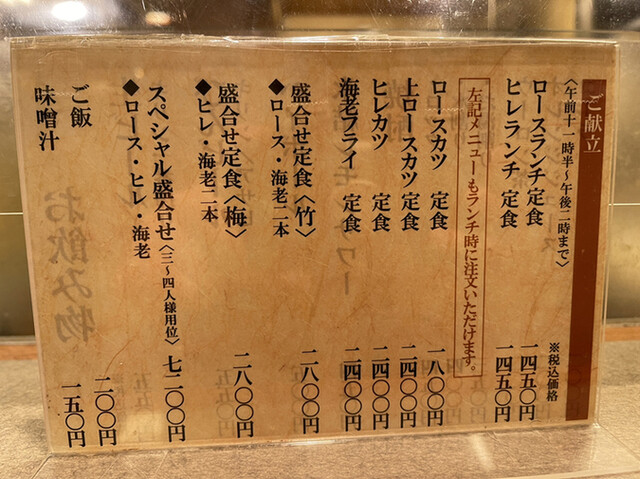 ご献立
〈午前十一時半～午後二時まで〉
※税込価格
ロースランチ定食 一四五〇円
ヒレランチ 定食 一四五〇円
左記メニューもランチ時に注文いただけます。
ロースカツ 定食 一八〇〇円
上ロースカツ 定食 二四〇〇円
ヒレカツ 定食 二四〇〇円
海老フライ 定食 二四〇〇円
盛合せ定食〈竹〉 二八〇〇円
◆ロース・海老二本
盛合せ定食〈梅〉 二八〇〇円
◆ヒレ・海老二本
スペシャル盛合せ〈三～四人様用位〉 七二〇〇円
◆ロース・ヒレ・海老
ご飯 二〇〇円
味噌汁 一五〇円
お飲み物